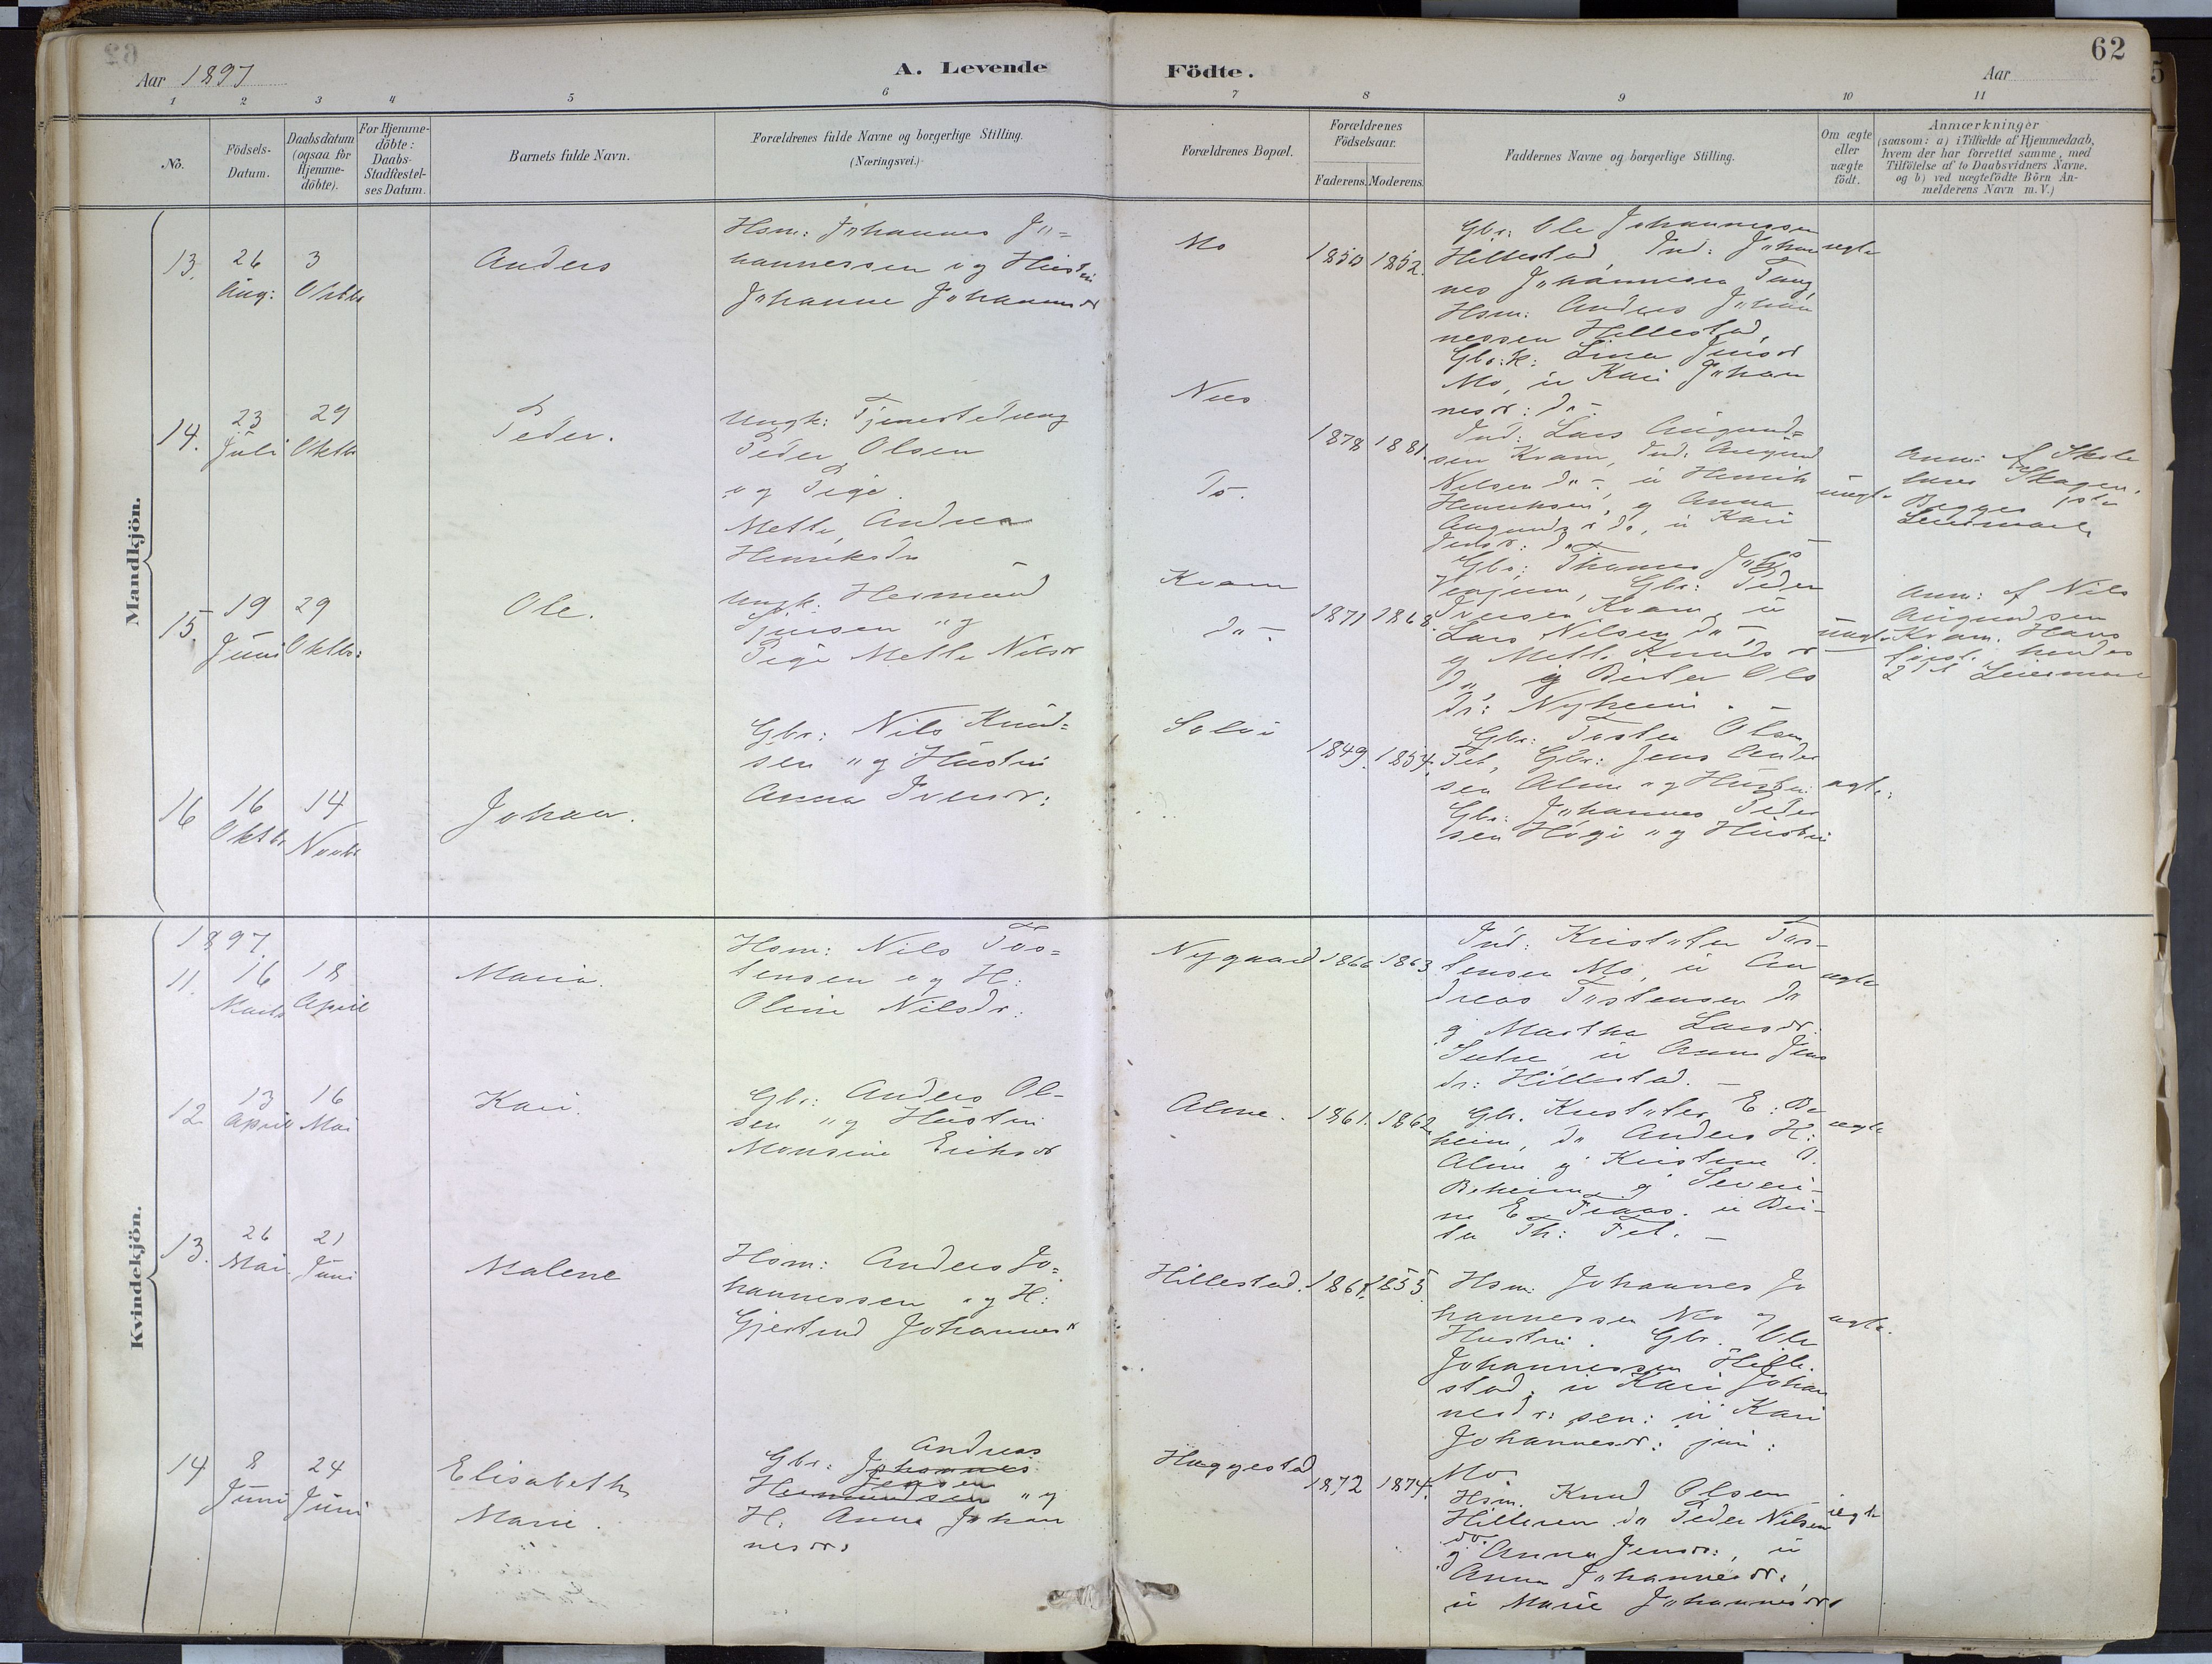 62
Aar 1897
A. Levende Födte.
Aar
1 2 3 4 5 6 7 8 9 10 11
No.
Födsels-Datum.
Daabsdatum (ogsaa for Hjemme-döbte).
For Hjemme-döbte: Daabs-Stadfæstel-ses Datum.
Barnets fulde Navn.
Forældrenes fulde Navne og borgerlige Stilling.
(Næringsvei.)
Forældrenes Bopæl.
Forældrenes Födselsaar.
Faderens. Moderens.
Faddernes Navne og borgerlige Stilling.
Om ægte eller uægte födt.
Anmærkninger
(saasom: a) i Tilfælde af Hjemmedaab,
hvem der har forrettet samme, med
Tilföielse af to Daabsvidners Navne.
og b) ved uægtefödte Börn An-
melderens Navn m.V.)
Mandkjön.
13.
26 Aug:
3 Oktbr
Anders
Hsm: Johannes Jo=
hannessen og Hustru
Johanne Johannesdr
Mo
1850 1852.
Gbr: Ole Johannessen
Hillestad, Ind: Johan
nes Johannessen Tang,
Hsm: Anders Johan
nessen Hillestad,
Gbr: K: Lina Jensdr
Mo, u Kari Johan
nesdr: do -
ægte
14.
23 Juli
29 Oktbr
Peder.
Ungk: Tjenestedreng
Peder Olsen
og Pige
Mette Andrea
Henriksdr
Nees
To.
1878 1881.
Ind: Lars Augund=
sen Kvam, Ind: Augund
Nilsen do -, u Henrik
Henriksen, g Anna
Augundsdr do, u Kari
Jensdr: do -
uægte
Anm: af Skole
lærer Skagen.
Begges 1ste
Leiermaal
15.
19 Juni
29 Oktbr:
Ole.
Ungk: Hermund
Sjursen og
Pige Mette Nilsdr
Kvam
do -
1871 1868
Gbr: Thomas
Gbr: Peder
Iversen Kvam, u
Lars Nilsen do -
g Mette Knudsdr
do g Berte Ols
dr: Nyheim. -
uægte
Anm: af Nils
Augundsen
Kvam. Hans
første, hendes
2det Leiermaal
16
16 Oktbr
14 Novbr
Johan.
Gbr: Nils Knud=
sen og Hustru
Anna Iversdr:
Solvi
1849. 1854.
Gbr: Tosten Olsen
Fet, Gbr: Jens Ander
sen Alme og Hustru
Gbr: Johannes Peder
sen Høgi og Hustru
ægte:
Kvindekjön.
1897.
11.
16 Marts
18 April
Maria.
Hsm: Nils Tos=
tensen og H:
Oline Nilsdr:
Nygaard
1866 1863
Ind: Kristofer Tos-
tensen Mo, u An
dreas Tostensen do
g Martha Larsdr.
u Anna Jens
dr: Hillestad. -
ægte
12
13 April
16 Mai
Kari.
Gbr: Anders Ol-
sen og Hustru
Monsine Eriksdr
Alme.
1861. 1862
Gbr. Kristofer E: Be
heim, do Anders H:
Alme g Kristine O.
Beheim, g Severi-
ne E. u Ber-
te Th: Fet. -
ægte
13.
26 Mai.
21 Juni
Malene
Hsm: Anders Jo=
hannessen og H:
Gjertrud Johannesdr
Hillestad.
1868. 1855.
Hsm: Johannes Jo
hannessen Mo og
Hustru. Gbr. Ole
Johannessen Hille-
stad, u Kari Johan
nesdr: sen: u Kari
Johannesdr: jun:
Mo.
ægte.
14
8 Juni
24 Juni
Elisabeth
Marie.
Andreas
Gbr: Johannes
Jensen
Hermundsen og
H. Anna Johan
nesdr:
Haggestad
1872 1874.
Hsm. Knud Olsen
Hilleren do Peder Nilsen
do
g Anna Jensdr:, u
Anna Johannesdr:,
u Marie Johannesdr.
ægte